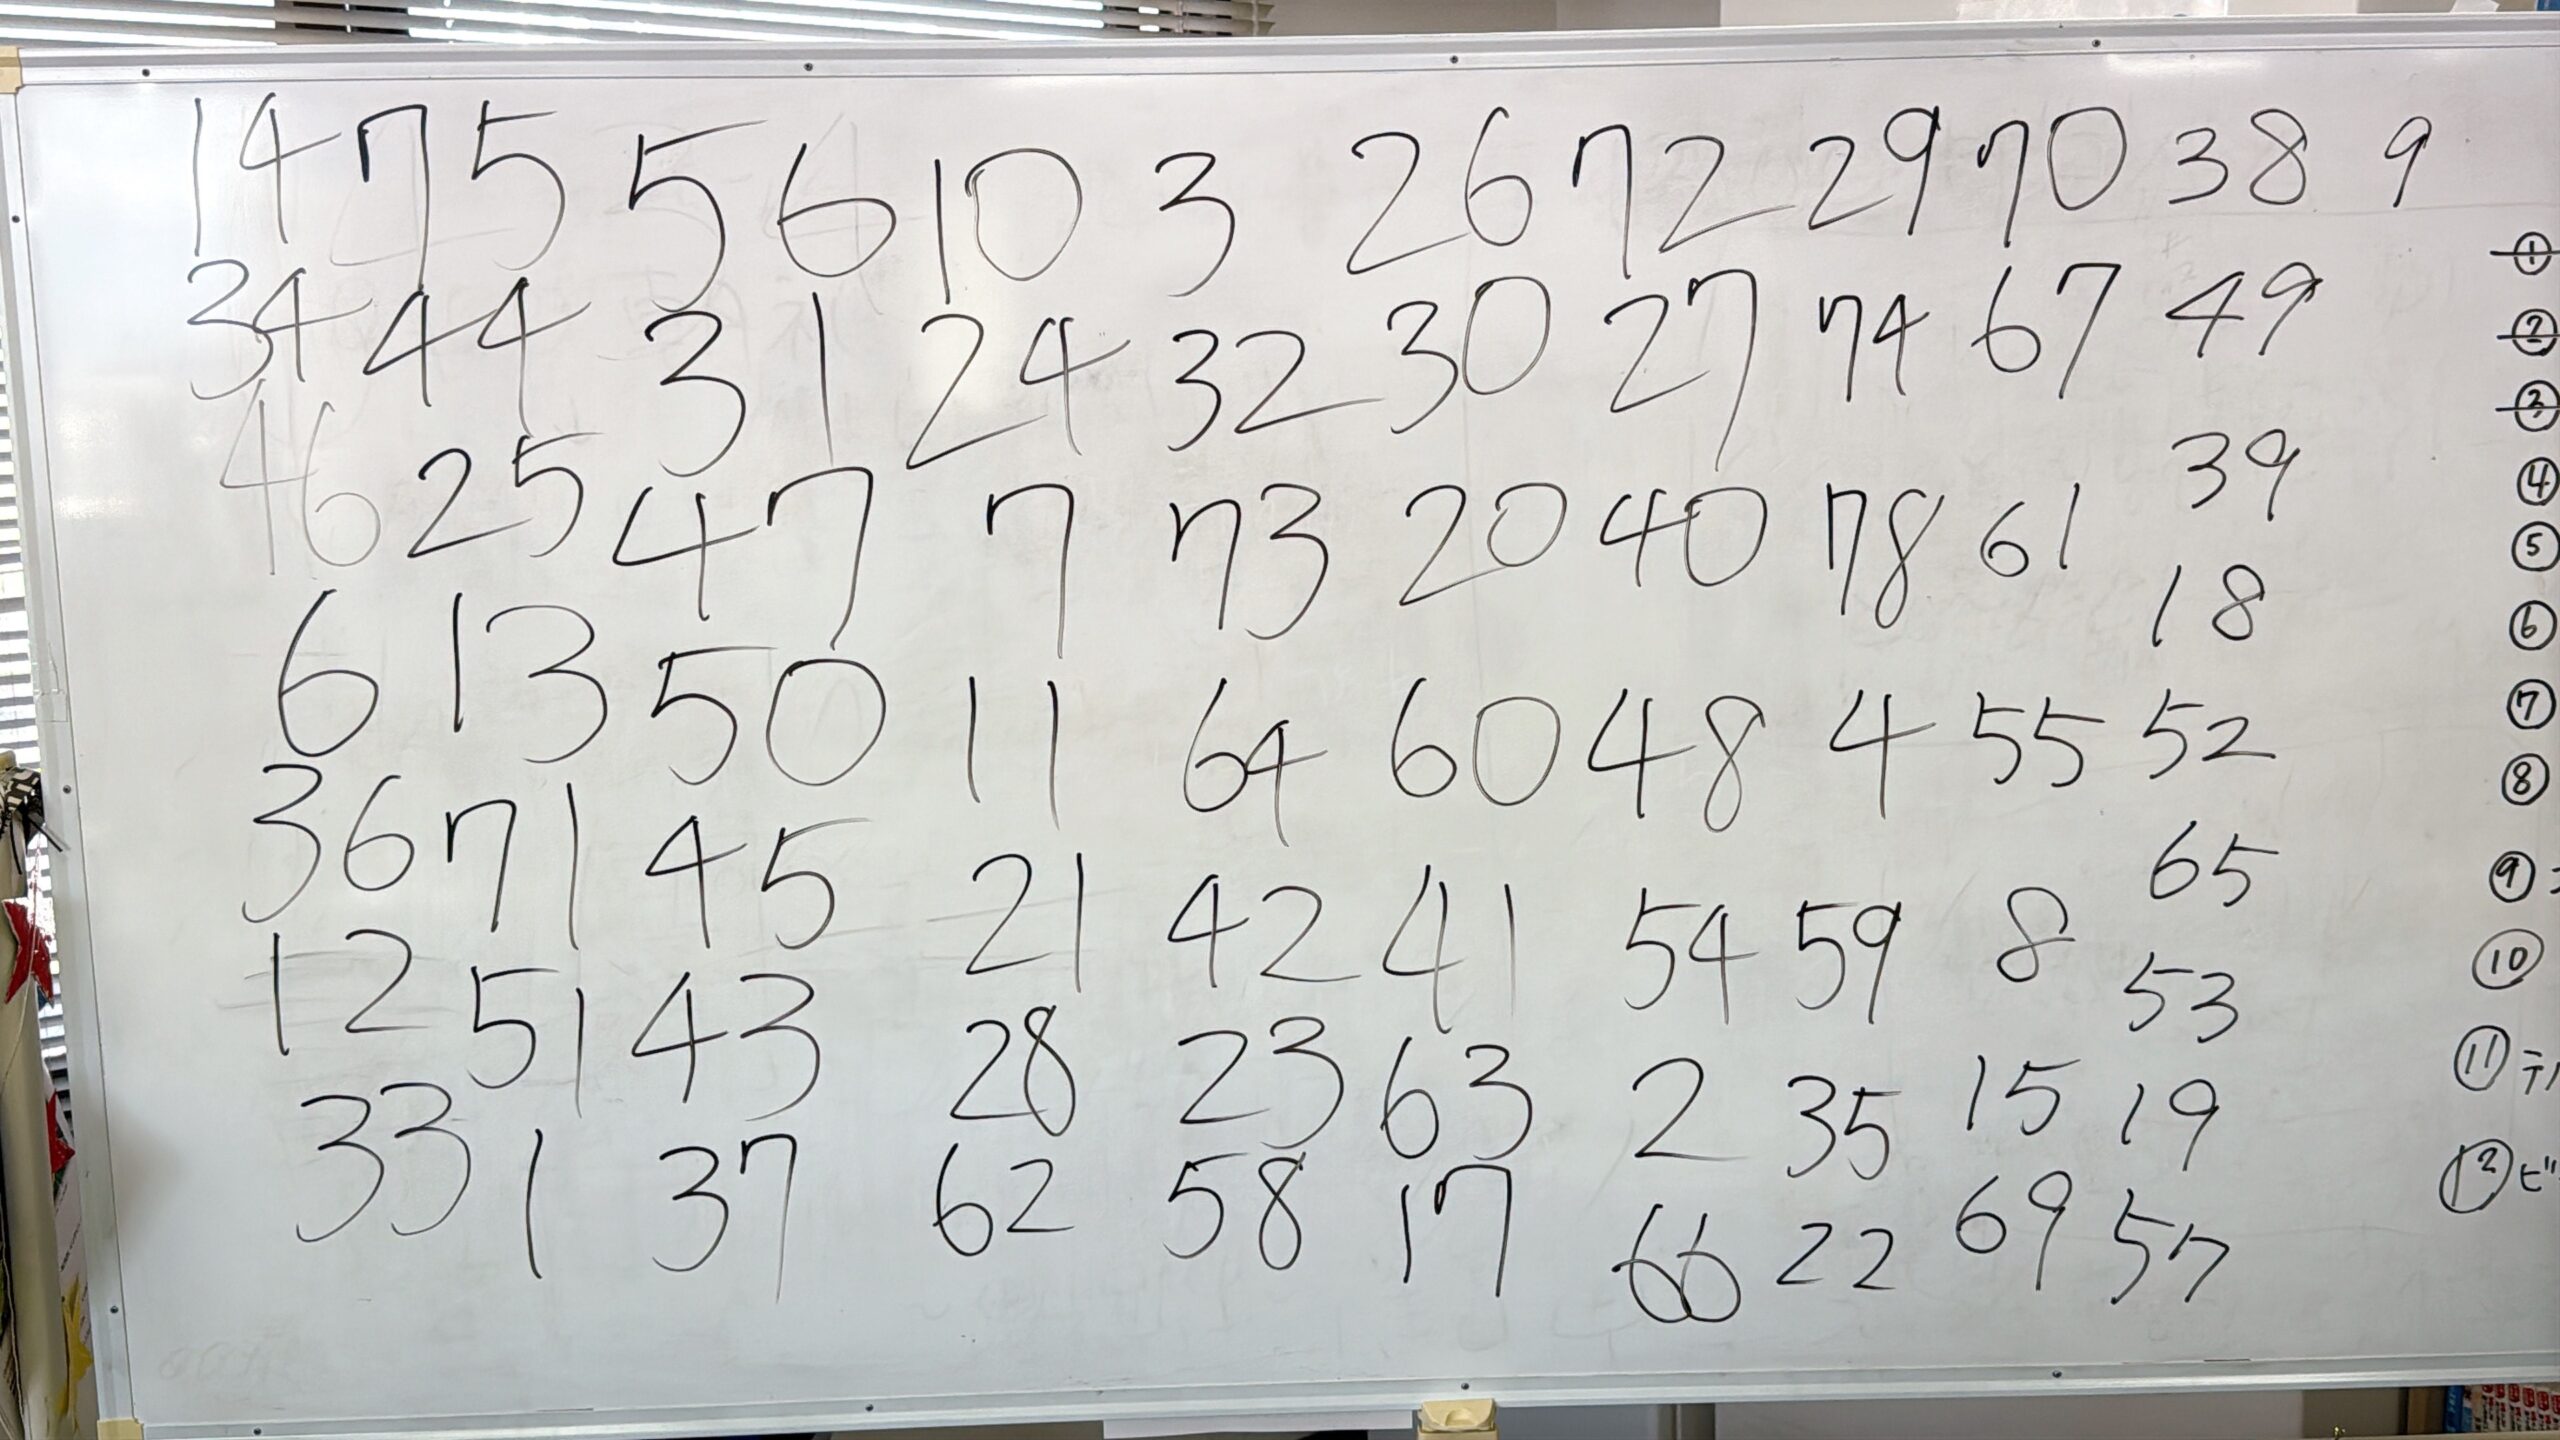 14 75 56 10 3 26 72 29 70 38 9
34 44 31 24 32 30 27 74 67 49
46 25 47 7 73 20 40 78 61 39
6 13 50 11 64 60 48 4 55 18
36 71 45 21 42 41 54 59 8 52
12 51 43 28 23 63 2 35 15 65
33 1 37 62 58 17 66 22 69 53
19
57
①
②
③
④
⑤
⑥
⑦
⑧
⑨
⑩
⑪ テ
⑫ ビ